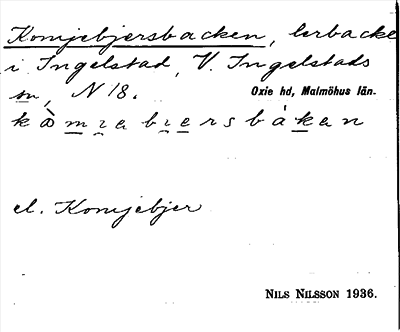 Komjebjersbacken, lerbacke
i Ingelstad, V. Ingelstads
sn, N 18. Oxie hd, Malmöhus län.
el. Komjebjer
NILS NILSSON 1936.